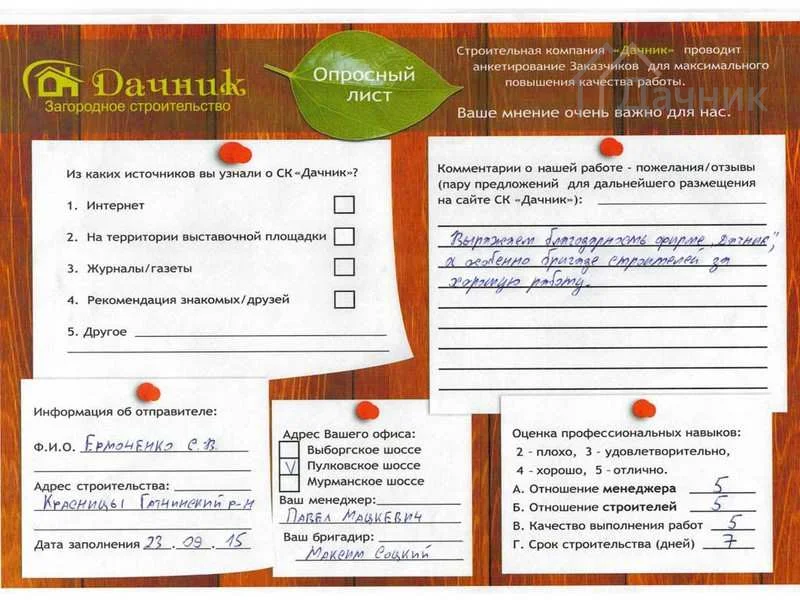 Дачник
Загородное строительство
Опросный
лист
Строительная компания «Дачник» проводит
анкетирование Заказчиков для максимального
повышения качества работы.
Ваше мнение очень важно для нас.
Дачник
Из каких источников вы узнали о СК «Дачник»?
1. Интернет
2. На территории выставочной площадки
3. Журналы/газеты
4. Рекомендация знакомых/друзей
5. Другое
Комментарии о нашей работе - пожелания/отзывы
(пару предложений для дальнейшего размещения
на сайте СК «Дачник»):
Выражаем благодарность фирме „Дачник",
а особенно бригаде строителей за
хорошую работу.
Информация об отправителе:
Ф.И.О. Ермоченко С.В.
Адрес строительства:
Красницы Гатчинский р-н
Дата заполнения 23.09.15
Адрес Вашего офиса:
Выборгское шоссе
V Пулковское шоссе
Мурманское шоссе
Ваш менеджер:
Павел Мацкевич
Ваш бригадир:
Максим Соцкий
Оценка профессиональных навыков:
2 - плохо, 3 - удовлетворительно,
4 - хорошо, 5 - отлично.
А. Отношение менеджера 5
Б. Отношение строителей 5
В. Качество выполнения работ 5
Г. Срок строительства (дней) 7